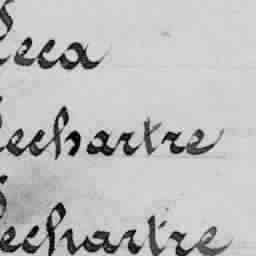 Leca
Lechartre
Lechartre